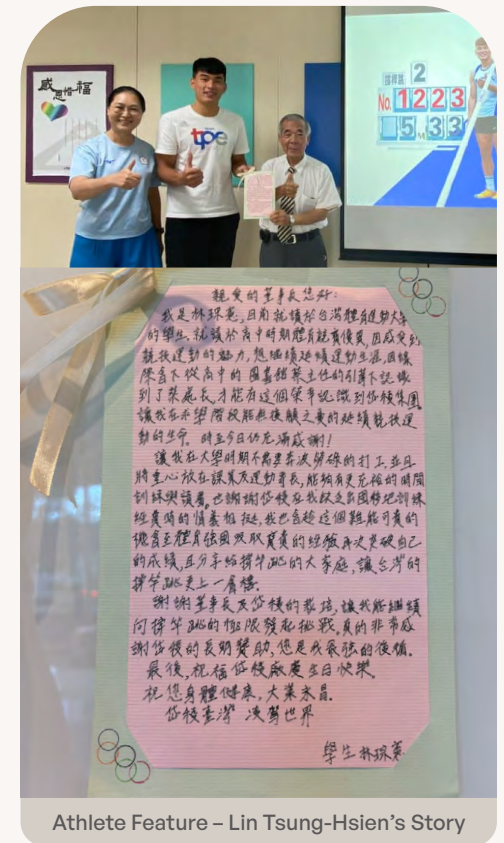 感
恩惜福
tpe
2
No. 1223
5.33
親愛的董事長您好:
我是林琮憲,目前就讀於台灣體育運動大學
的學生,就讀於高中時期體育就資優異,因感受到
競技運動的魅力,想繼續延續運動生涯,因緣
際會下從高中的圖書館蔡主任的引導下認識
到了葉處長才能有這個榮幸認識到岱稜集團,
讓我在求學階段能無後顧之憂的延續競技運
動的生命,時至今日仍充滿感謝!
讓我在大學時期不需要奔波勞碌的打工,並且
將重心放在課業及運動專長,能夠有更充裕的時間
訓練與讀書,也謝謝岱稜在我缺乏出國移地訓練
經費時的情義相挺,我也會趁這個難能可貴的
機會至體育強國吸取寶貴的經驗再次突破自己
的成績,且分享給撐竿跳的大家庭,讓台灣的
撐竿跳更上一層樓.
謝謝董事長及岱稜的栽培,讓我能繼續
向撐竿跳的極限發起挑戰,真的非常感
謝岱稜的長期贊助,您是我最強的後備.
最後,祝福岱稜廠慶生日快樂.
祝您身體健康,大業永昌.
岱稜臺灣 凌駕世界
學生 林琮憲
Athlete Feature – Lin Tsung-Hsien's Story